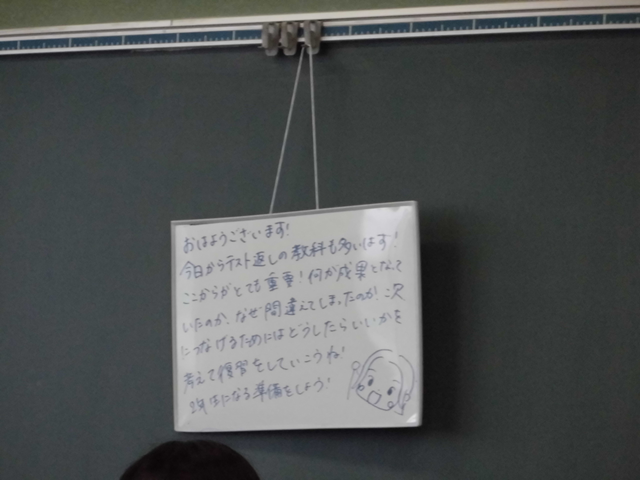 おはようございます!
今日からテスト返しの教科も多いはず!
ここからがとても重要!何が成果となって
いたのか、なぜ間違えてしまったのか、次
につなげるためにはどうしたらいいかを
考えて復習をしていこうね!
2年生になる準備をしよう!